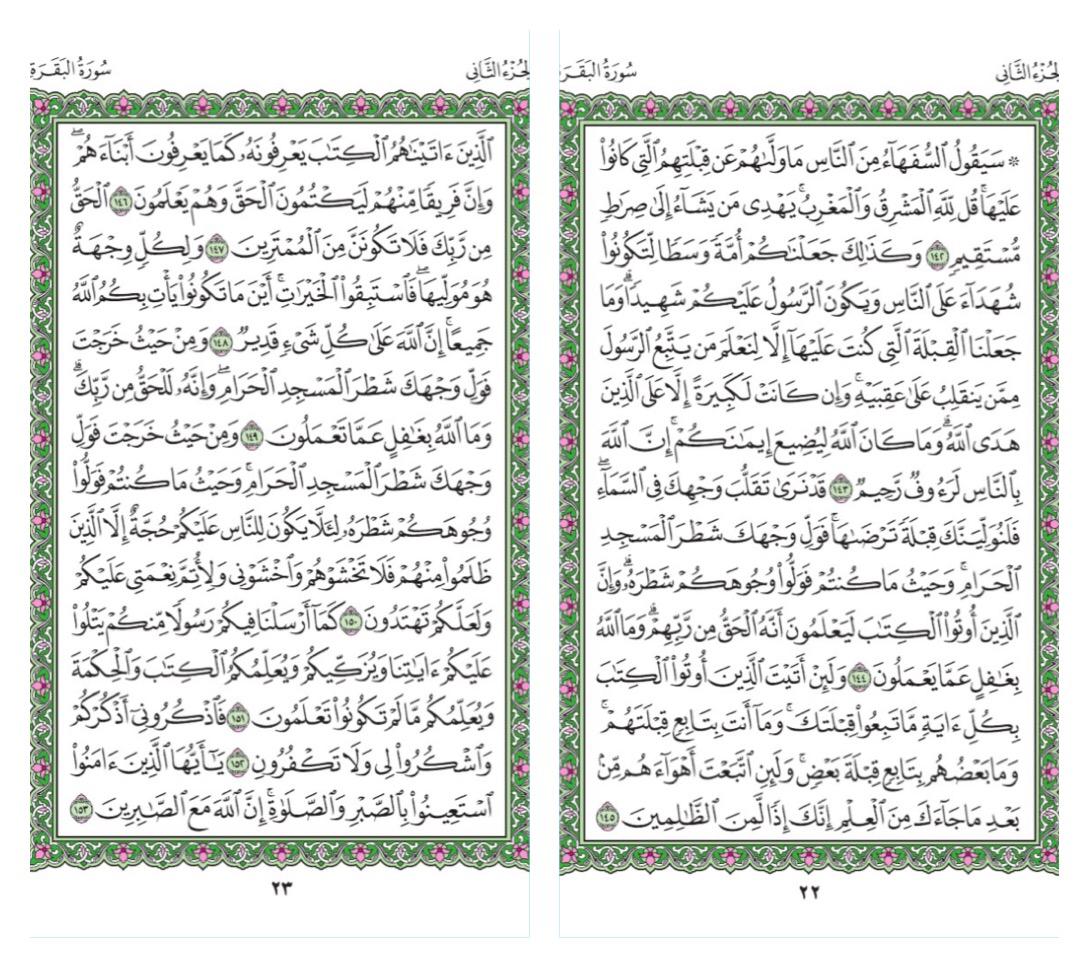 الجزء الثاني
سورة البقرة
۞ سَيَقُولُ ٱلسُّفَهَآءُ مِنَ ٱلنَّاسِ مَا وَلَّىٰهُمْ عَن قِبْلَتِهِمُ ٱلَّتِى كَانُوا۟
عَلَيْهَا ۚ قُل لِّلَّهِ ٱلْمَشْرِقُ وَٱلْمَغْرِبُ ۚ يَهْدِى مَن يَشَآءُ إِلَىٰ صِرَٰطٍ
مُّسْتَقِيمٍ ١٤٢ وَكَذَٰلِكَ جَعَلْنَٰكُمْ أُمَّةً وَسَطًا لِّتَكُونُوا۟
شُهَدَآءَ عَلَى ٱلنَّاسِ وَيَكُونَ ٱلرَّسُولُ عَلَيْكُمْ شَهِيدًا ۗ وَمَا
جَعَلْنَا ٱلْقِبْلَةَ ٱلَّتِى كُنتَ عَلَيْهَآ إِلَّا لِنَعْلَمَ مَن يَتَّبِعُ ٱلرَّسُولَ
مِمَّن يَنقَلِبُ عَلَىٰ عَقِبَيْهِ ۚ وَإِن كَانَتْ لَكَبِيرَةً إِلَّا عَلَى ٱلَّذِينَ
هَدَى ٱللَّهُ ۗ وَمَا كَانَ ٱللَّهُ لِيُضِيعَ إِيمَٰنَكُمْ ۚ إِنَّ ٱللَّهَ
بِٱلنَّاسِ لَرَءُوفٌ رَّحِيمٌ ١٤٣ قَدْ نَرَىٰ تَقَلُّبَ وَجْهِكَ فِى ٱلسَّمَآءِ ۖ
فَلَنُوَلِّيَنَّكَ قِبْلَةً تَرْضَىٰهَا ۚ فَوَلِّ وَجْهَكَ شَطْرَ ٱلْمَسْجِدِ
ٱلْحَرَامِ ۚ وَحَيْثُ مَا كُنتُمْ فَوَلُّوا۟ وُجُوهَكُمْ شَطْرَهُۥ ۗ وَإِنَّ
ٱلَّذِينَ أُوتُوا۟ ٱلْكِتَٰبَ لَيَعْلَمُونَ أَنَّهُ ٱلْحَقُّ مِن رَّبِّهِمْ ۗ وَمَا ٱللَّهُ
بِغَٰفِلٍ عَمَّا يَعْمَلُونَ ١٤٤ وَلَئِنْ أَتَيْتَ ٱلَّذِينَ أُوتُوا۟ ٱلْكِتَٰبَ
بِكُلِّ ءَايَةٍ مَّا تَبِعُوا۟ قِبْلَتَكَ ۚ وَمَآ أَنتَ بِتَابِعٍ قِبْلَتَهُمْ ۚ
وَمَا بَعْضُهُم بِتَابِعٍ قِبْلَةَ بَعْضٍ ۚ وَلَئِنِ ٱتَّبَعْتَ أَهْوَآءَهُم مِّنۢ
بَعْدِ مَا جَآءَكَ مِنَ ٱلْعِلْمِ ۙ إِنَّكَ إِذًا لَّمِنَ ٱلظَّٰلِمِينَ ١٤٥
٢٢
الجزء الثاني
سورة البقرة
ٱلَّذِينَ ءَاتَيْنَٰهُمُ ٱلْكِتَٰبَ يَعْرِفُونَهُۥ كَمَا يَعْرِفُونَ أَبْنَآءَهُمْ ۖ
وَإِنَّ فَرِيقًا مِّنْهُمْ لَيَكْتُمُونَ ٱلْحَقَّ وَهُمْ يَعْلَمُونَ ١٤٦ ٱلْحَقُّ
مِن رَّبِّكَ فَلَا تَكُونَنَّ مِنَ ٱلْمُمْتَرِينَ ١٤٧ وَلِكُلٍّ وِجْهَةٌ
هُوَ مُوَلِّيهَا ۖ فَٱسْتَبِقُوا۟ ٱلْخَيْرَٰتِ ۚ أَيْنَ مَا تَكُونُوا۟ يَأْتِ بِكُمُ ٱللَّهُ
جَمِيعًا ۚ إِنَّ ٱللَّهَ عَلَىٰ كُلِّ شَىْءٍ قَدِيرٌ ١٤٨ وَمِنْ حَيْثُ خَرَجْتَ
فَوَلِّ وَجْهَكَ شَطْرَ ٱلْمَسْجِدِ ٱلْحَرَامِ ۖ وَإِنَّهُۥ لَلْحَقُّ مِن رَّبِّكَ ۗ
وَمَا ٱللَّهُ بِغَٰفِلٍ عَمَّا تَعْمَلُونَ ١٤٩ وَمِنْ حَيْثُ خَرَجْتَ فَوَلِّ
وَجْهَكَ شَطْرَ ٱلْمَسْجِدِ ٱلْحَرَامِ ۚ وَحَيْثُ مَا كُنتُمْ فَوَلُّوا۟
وُجُوهَكُمْ شَطْرَهُۥ لِئَلَّا يَكُونَ لِلنَّاسِ عَلَيْكُمْ حُجَّةٌ إِلَّا ٱلَّذِينَ
ظَلَمُوا۟ مِنْهُمْ فَلَا تَخْشَوْهُمْ وَٱخْشَوْنِى وَلِأُتِمَّ نِعْمَتِى عَلَيْكُمْ
وَلَعَلَّكُمْ تَهْتَدُونَ ١٥٠ كَمَآ أَرْسَلْنَا فِيكُمْ رَسُولًا مِّنكُمْ يَتْلُوا۟
عَلَيْكُمْ ءَايَٰتِنَا وَيُزَكِّيكُمْ وَيُعَلِّمُكُمُ ٱلْكِتَٰبَ وَٱلْحِكْمَةَ
وَيُعَلِّمُكُم مَّا لَمْ تَكُونُوا۟ تَعْلَمُونَ ١٥١ فَٱذْكُرُونِىٓ أَذْكُرْكُمْ
وَٱشْكُرُوا۟ لِى وَلَا تَكْفُرُونِ ١٥٢ يَٰٓأَيُّهَا ٱلَّذِينَ ءَامَنُوا۟
ٱسْتَعِينُوا۟ بِٱلصَّبْرِ وَٱلصَّلَوٰةِ ۚ إِنَّ ٱللَّهَ مَعَ ٱلصَّٰبِرِينَ ١٥٣
٢٣